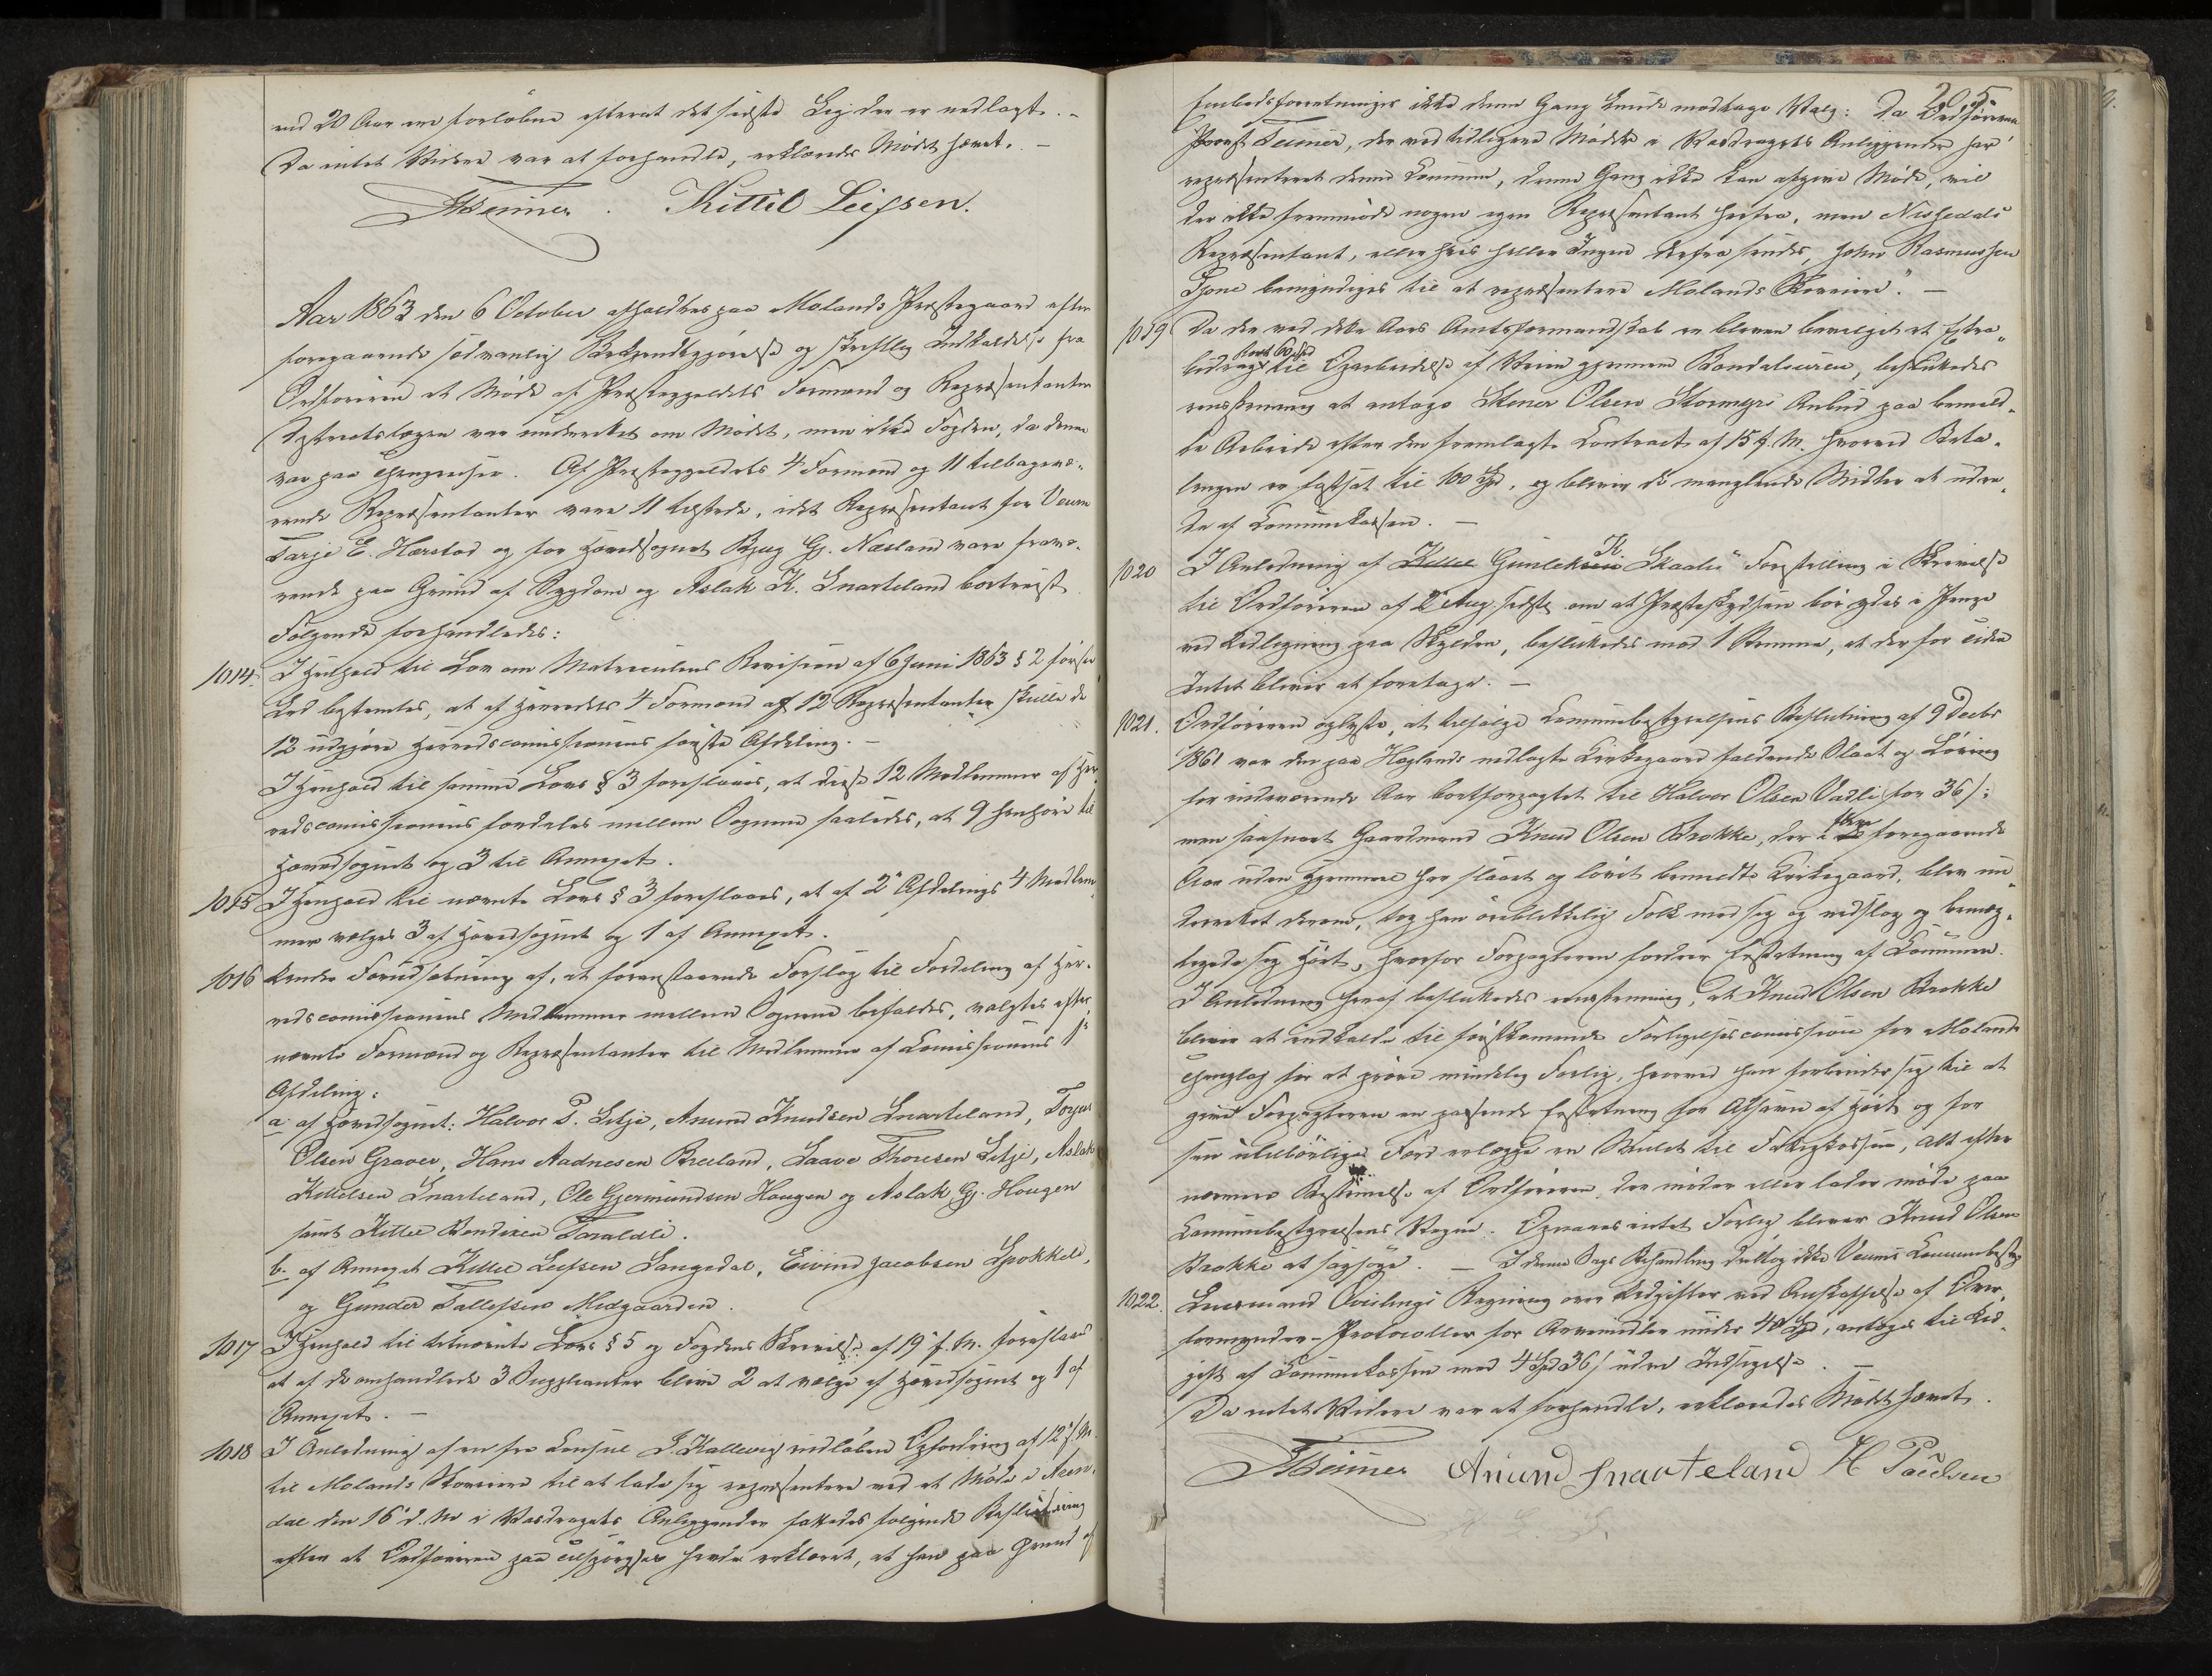 end 20 Aar ere forløbne efterat det sidste Lig der er nedlagt. -
Da intet Videre var at forhandle, erklæredes Mødet hævet. -
Kittil Leifsen.
Aar 1863 den 6 October afholdtes paa Molands Præstegaard efter
foregaaende sædvanlig Bekjendtgjørelse og skriftlig Indkaldelse fra
Ordføreren et Møde af Præstegjeldets Formænd og Repræsentanter
Distriktslægen var underrettet om Mødet, men ikke Fogden, da denne
var paa Thingreiser. Af Præstegjeldets 4 Formænd og 11 tilbagevæ-
rende Repræsentanter vare 11 tilstede, idet Repræsentant for Veum
Tarje E. Harstad og for Hovedsognet Bjug Gj. Næsland vare fravæ-
rende paa Grund af Sygdom og Aslak K. Snarteland bortreist
Følgende forhandledes:
1014. I Henhold til Lov om Matriculens Revision af 6 Juni 1863 § 2 første
Led bestemtes, at af Herredets 4 Formænd og 12 Repræsentanter skulle de
12 udgjøre Herredscomissionens første Afdeling. -
I Henhold til samme Lovs § 3 foreslaaes, at disse 12 Medlemmer af Her-
redscomissionens fordeles mellem Sognene saaledes, at 9 henhøre til
Hovedsognet og 3 til Annexet.
1015 I Henhold til nævnte Lovs § 3 foreslaaes, at af 2n Afdelings 4 Medlem-
mer vælges 3 af Hovedsognet og 1 af Annexet.
1016 Under Forudsætning af, at foranstaaende Forslag til Fordeling af Her-
redscomissionens Medlemmer mellem Sognene bifaldes, valgtes efter-
nævnte Formænd og Repræsentanter til Medlemmer af Comissionens 1e
Afdeling:
a. af Hovedsognet: Halvor P. Litje, Anund Knudsen Snarteland, Torjus
Olsen Graver, Hans Aadnesen Breland, Saave Thoresen Litje, Aslak
Kittelsen Snarteland, Ole Gjermundsen Haugen og Aslak Gj. Haugen
samt Kittel Bendixen Taraldli.
b. af Annexet Kittel Leifsen Langedal, Eivind Jacobsen Spokkeli,
og Gunder Tallefsen Midgaarden.
1017 I Henhold til bemeldte Lovs § 5 og Fogdens Skrivelse af 19 f. M. foreslaaes
at af de omhandlede 3 Suppleanter blive 2 at vælge af Hovedsognet og 1 af
Annexet. -
1018 I Anledning af en fra Consul S. Kallevig indløben Opfordring af 12 f. M.
til Molands Skoveiere til at lade sig repræsentere ved et Møde i Aren-
dal den 16 d. M. i Vasdragets Anliggender fattedes følgende Beslutning
efter at Ordføreren paa Tilspørgsel havde erklæret, at han paa Grund af
205
Embedsforretninger ikke denne Gang kunde modtage Valg: "Da Ordføreren
Provst Feiner, der ved tidligere Møder i Vasdragets Anliggender har
repræsenteret denne Commune, denne Gang ikke kan afgive Møde, vil
der ikke fremmøde nogen egen Repræsentant herfra, men Nissedals
Repræsentant, eller hvis heller Ingen derfra sendes, John Rasmussen
Tjone bemyndiges til at repræsentere Molands Skoveiere". -
1019 Da der ved dette Aars Amtsformandskab er bleven bevilget et Extra-
bidrag stort 60 Spd til Oparbeidelse af Veien gjennem Bandalsuren, besluttedes
eenstemmig at antage Stener Olsen Stormyrs Anbud paa bemeld-
te Arbeide efter den fremlagte Contract af 15 f. M. hvorved Beta-
lingen er fastsat til 100 Spd, og bliver de manglende Midler at udre-
de af Communekassen. -
1020 I Anledning af Kittel Gunleiksen K Skaali's Forestilling i Skrivelse
til Ordføreren af 2 Aug. sidstl. om at Præsteskydsen bør ydes i Penge
ved Udligning paa Skylden, besluttedes mod 1 Stemme, at derfor siden
Intet bliver at foretage. -
1021. Ordføreren oplyste, at ifølge Communebestyrelsens Beslutning af 9 Decbr
1861 var den paa Haglands nedlagte Kirkegaard faldende Slaat og Løving
for indeværende Aar bortforpagtet til Halvor Olsen Vadli for 36 s;
men saasnart Gaardmand Knud Olsen Brokke, der i flere foregaaende
Aar uden Hjemmel har slaaet og løvet bemeldte Kirkegaard, blev un-
derrettet derom, tog han øieblikkelig Folk med sig og nedslog og bemæg-
tigede sig Høet, hvorfor Forpagteren fordrer Erstatning af Communen.
I Anledning heraf besluttedes eenstemmig, at Knud Olsen Brokke
bliver at indkalde til førstkommende Forligelsescomission for Molands
Thinglag for at prøve mindelig Forlig, hvorved han forbinder sig til at
give Forpagteren en passende Erstatning for Afsavn af Høet og for
sin utilbørlige Færd erlægge en Mulct til Fattigkassen, Alt efter
nærmere Bestemmelse af Ordføreren, der møder eller lader møde paa
Communebestyrelsens Vegne. Opnaaes intet Forlig, bliver Knud Olsen
Brokke at sagsøge. - I denne Sags Behandling deltog ikke Veums Communebest.
1022. Lensmand Qvislings Regning over Udgifter ved Anskaffelse af Over-
formynder-Protocoller for Arvemidler under 40 Spd, antoges til Ud-
gift af Communekassen med 4 Spd 36 s uden Indsigelse. -
Da intet Videre var at forhandle, erklæredes Mødet hævet.
Anund Snarteland H Paulsen